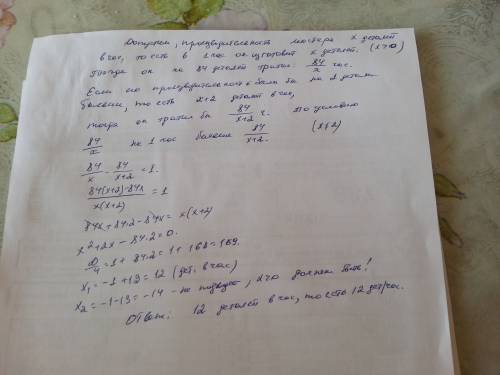 Допустим, производительность мастера x деталей
в час, то есть в 1 час он изготовит x деталей. (x>0)
Тогда он на 84 детали тратил 84/x час.
Если но производительность была бы на 2 детали
больше, то есть x+2 деталей в час,
тогда он тратил бы 84/x+2 ч. По условию
84/x на 1 час больше 84/x+2.
84/x - 84/x+2 = 1.
84(x+2)-84x/x(x+2) = 1
84x+84·2-84x = x(x+2)
x²+2x-84·2=0.
D/4 = 1+84·2=1+168=169.
x₁=-1+13=12 (дет. в час)
x₂=-1-13=-14 - не подходит, x>0 должен быть!
Ответ: 12 деталей в час, то есть 12 дет/час.